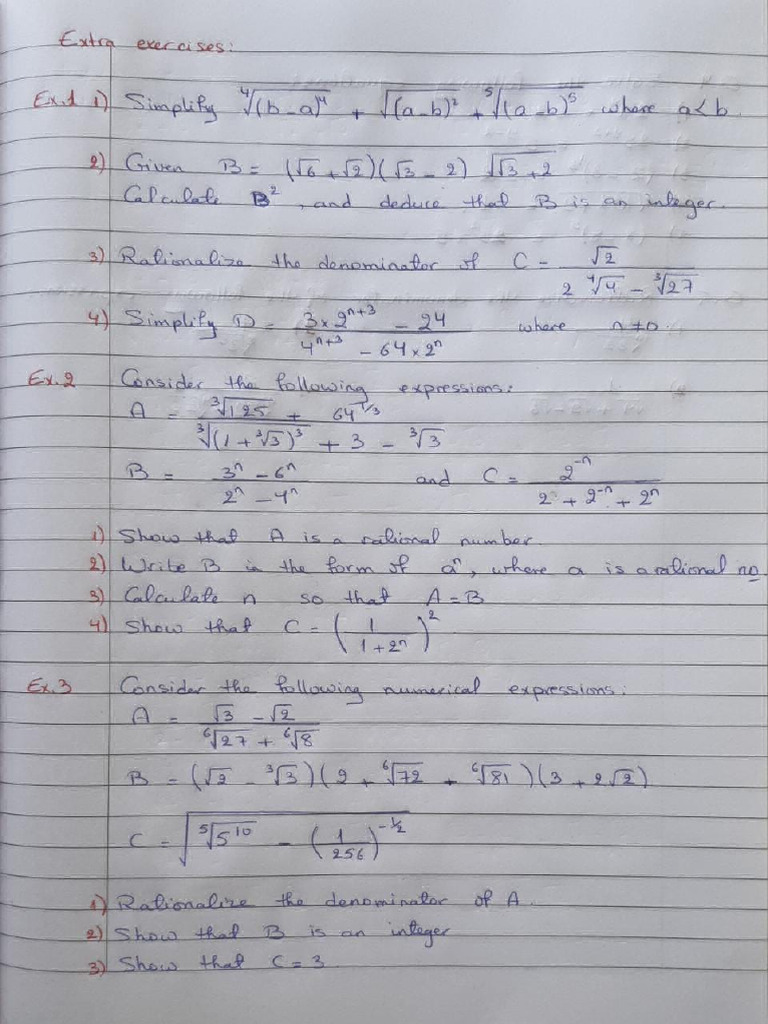 Extra exercises:
Ex.1 1) Simplify ⁴√(b-a)⁴ + √(a-b)² + ⁵√(a-b)⁵ where a<b.
2) Given B = (√6 + √2)(√3 - 2) √(√3 + 2)
Calculate B², and deduce that B is an integer.
3) Rationalize the denominator of C = √2 / (2 ⁴√4 - ³√27)
4) Simplify D = (3 × 2ⁿ⁺³ - 24) / (4ⁿ⁺³ - 64 × 2ⁿ) where n ≠ 0.
Ex.2 Consider the following expressions:
A = (³√125 + 64^(1/3)) / (³√(1 + ³√3)³ + 3 - ³√3)
B = (3ⁿ - 6ⁿ) / (2ⁿ - 4ⁿ) and C = 2⁻ⁿ / (2 + 2⁻ⁿ + 2ⁿ)
1) Show that A is a rational number.
2) Write B in the form of aⁿ, where a is a rational no
3) Calculate n so that A = B
4) Show that C = (1 / (1 + 2ⁿ))²
Ex.3 Consider the following numerical expressions:
A = (√3 - √2) / (⁶√27 + ⁶√8)
B = (√2 - ³√3)(2 + ⁶√72 + ⁶√81)(3 + 2√2)
C = √(⁵√5¹⁰ - (1/256)^(-1/2))
1) Rationalize the denominator of A.
2) Show that B is an integer
3) Show that C = 3